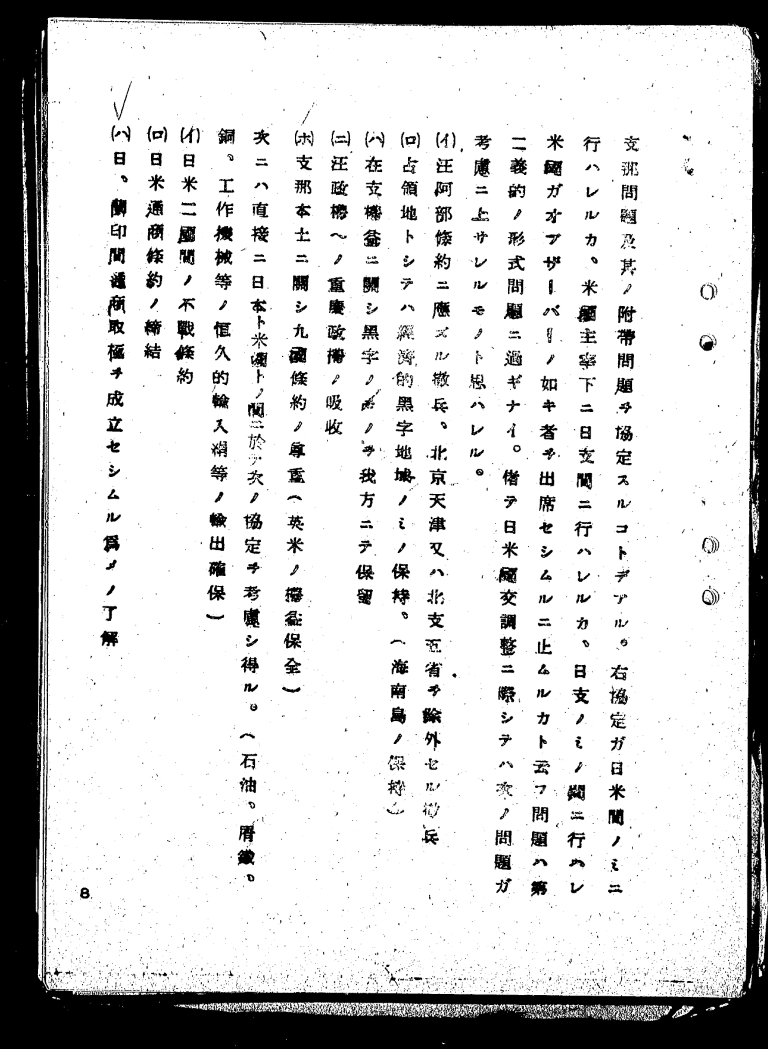 支那問題及其ノ附帶問題ヲ協定スルコトデアル。右協定ガ日米間ノミニ
行ハレルカ、米國主宰下ニ日支間ニ行ハレルカ、日支ノミノ間ニ行ハレ
米國ガオブザーバーノ如キ者ヲ出席セシムルニ止ムルカト云フ問題ハ第
二義的ノ形式問題ニ過ギナイ。偖テ日米國交調整ニ際シテハ次ノ問題ガ
考慮ニ上サレルモノト思ハレル。
(イ)汪阿部條約ニ應ズル撤兵、北京天津又ハ北支五省ヲ除外セル撤兵
(ロ)占領地トシテハ經濟的黑字地域ノミノ保持、(海南島ノ保持)
(ハ)在支權益ニ關シ黑字ノモノヲ我方ニテ保留
(ニ)汪政權ヘノ重慶政權ノ吸收
(ホ)支那本土ニ關シ九國條約ノ尊重(英米ノ權益保全)
次ニハ直接ニ日本ト米國トノ間ニ於テ次ノ協定ヲ考慮シ得ル。(石油、屑鐵、
銅、工作機械等ノ恒久的輸入絹等ノ輸出確保)
(イ)日米二國間ノ不戰條約
(ロ)日米通商條約ノ締結
(ハ)日、蘭印間通商取極ヲ成立セシムル爲メノ了解
8